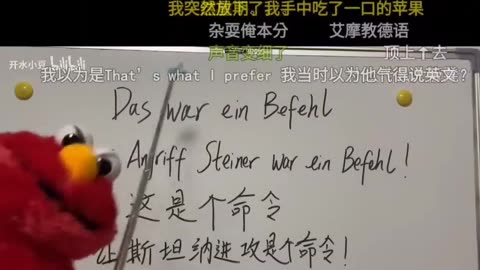 我突然放期了我手中吃了一口的苹果
杂耍俺本分 艾摩教德语
声音变细了 顶上去
开水小豆 bilibili
我以为是That's what I prefer 我当时以为他气得说英文?
Das war ein Befehl
Angriff Steiner war ein Befehl!
这是个命令
斯坦纳进攻是个命令!